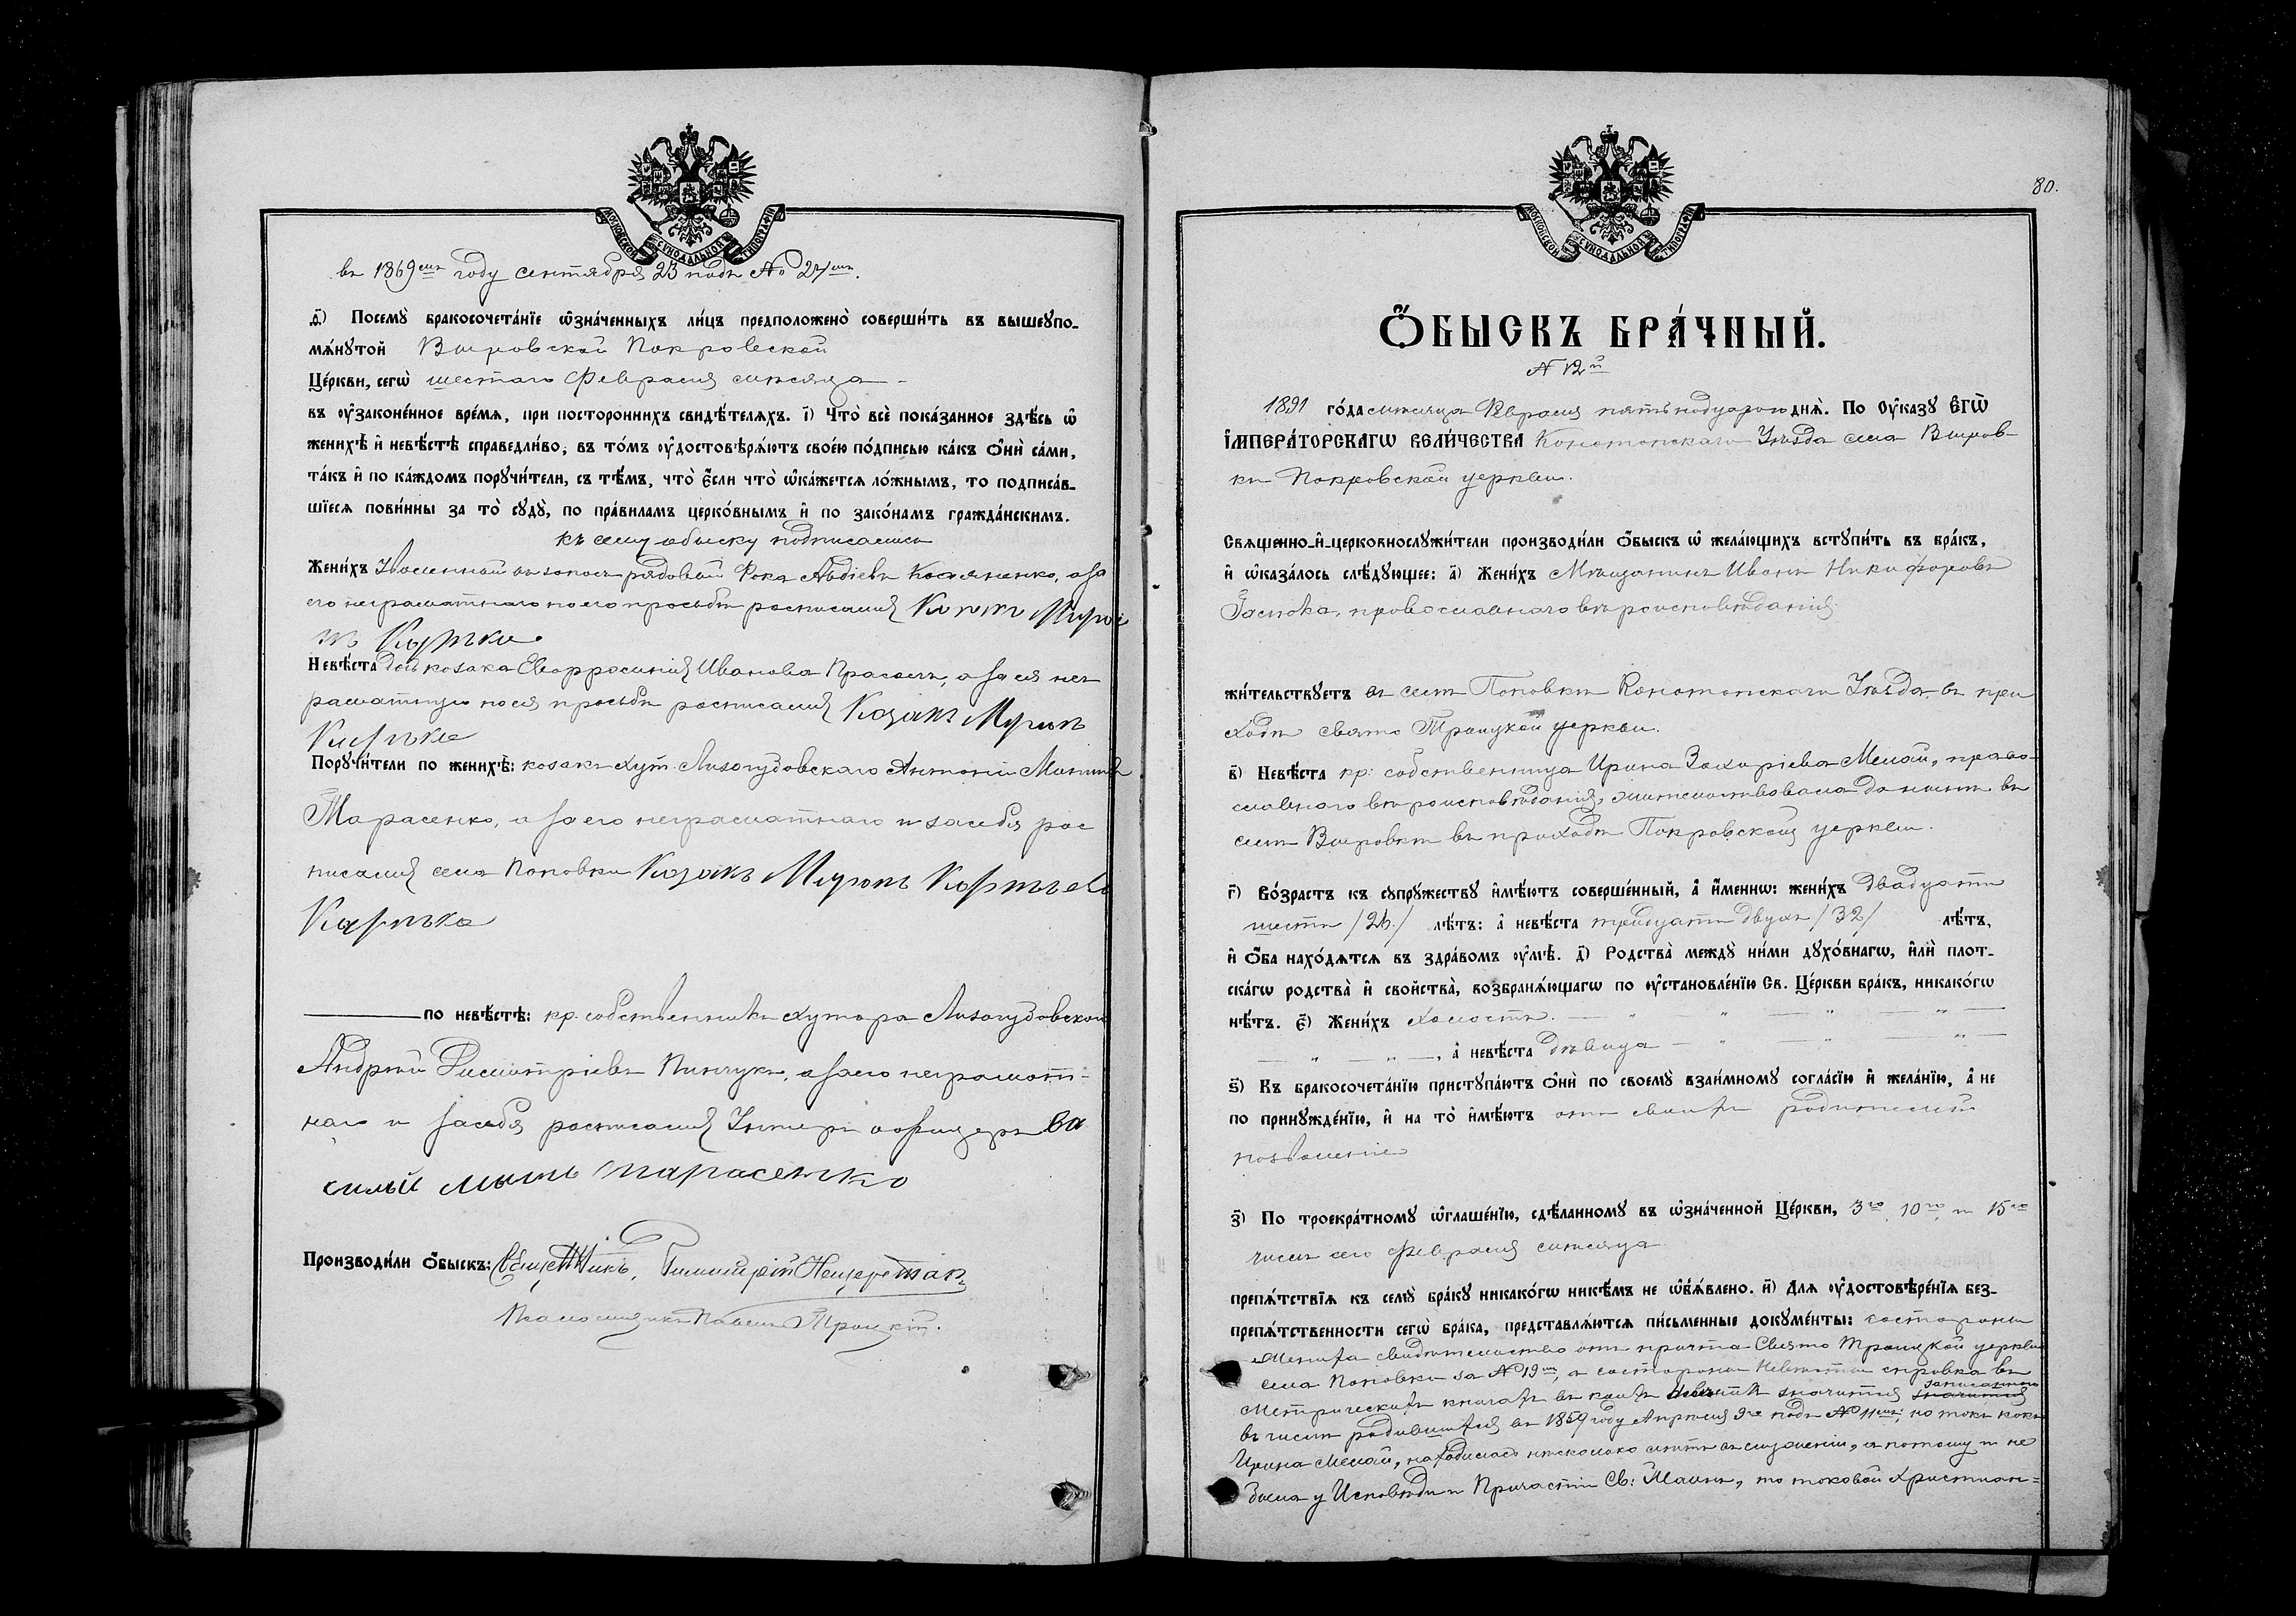 МОСКОВСКОЙ СѴНОДАЛЬНОЙ ТИПОГРАФІИ
въ 1869емъ году сентября 23 подъ № 24емъ.
д҃і) Посемꙋ̀ бракосочета́нїе ѡ҆зна́ченныхъ ли́цъ предположено̀ соверши́ть въ вышеꙋпо-
мѧ́нꙋтой Вировской Покровской
Це́ркви, сегѡ̀ шестаго Февраля мѣсяца -
въ ᲂу҆законе́нное вре́мѧ, при посторо́ннихъ свидѣ́телѧхъ. і҃) Что̀ всѐ пока́занное здѣ́сь ѡ҆
женихѣ̀ и҆ невѣ́стѣ справедли́во, въ то́мъ ᲂу҆достовѣрѧ́ютъ свое́ю по́дписью ка́къ ѻ҆нѝ са́ми,
та́къ и҆ по ка́ждомъ порꙋчи́тели, съ тѣ́мъ, что̀ є҆́сли что̀ ѡ҆ка́жетсѧ ло́жнымъ, то подписа́в-
шїесѧ пови́нны за то̀ сꙋдꙋ̀, по пра́виламъ церко́внымъ и҆ по зако́намъ гражда́нскимъ.
къ сему обыску подписались
Жени́хъ Уволенный въ запасъ рядовой Фока Авдіевъ Касяненко, а за
его неграматнаго по его просьбѣ росписался
Невѣ́ста дочь козака Евфросинія Иванова Прасолъ, а за ея нег
раматную по ея просьбѣ росписался Козакъ Миронъ
Порꙋчи́тели по женихѣ̀: козакъ хут. Лизогубовскаго Антоній
Тарасенко, а за его неграматнаго и за себя рос
писался села Поповки Козакъ Миронъ
по невѣ́стѣ: кр. собственникъ хутора Лизогубовскаго
Андрей Димитріевъ Пинчукъ, а за его неграмат-
наго и за себя росписался Унтеръ офицеръ Ва
силий Тарасенко
Производи́ли ѻ҆́быскъ: Священникъ,
Псаломщикъ Павелъ Троицкій.
80.
МОСКОВСКОЙ СѴНОДАЛЬНОЙ ТИПОГРАФІИ
Ѻ҆́БЫСКЪ БРА́ЧНЫЙ.
№ 12й
1891 го́да мѣсяца Февраля пятьнадцатого днѧ̀. По ᲂу҆ка́зꙋ Є҆ГѠ̀
І҆МПЕРА́ТОРСКАГѠ ВЕЛИ́ЧЕСТВА Конотопскаго Уѣзда села Виров-
ки Покровской церкви.
Свѧще́нно-и҆-церковнослꙋжи́тели производи́ли ѻ҆́быскъ ѡ҆ жела́ющихъ встꙋпи́ть въ бра́къ,
и҆ ѡ҆каза́лось слѣ́дꙋющее: а҃) Жени́хъ Мѣщанинъ Иванъ Никифоровъ
православнаго вѣроисповѣданія
жи́тельствꙋетъ въ селѣ Поповки Конотопскаго Уѣзда, въ при
ходѣ свято Троицкой церкви.
в҃) Невѣ́ста кр: собственница Ирина Захаріева Мелай, право-
славного вѣроисповѣданія, жительствовала до нынѣ въ
селѣ Вировки въ приходѣ Покровской церкви.
г҃) Во́зрастъ къ сꙋпрꙋ́жествꙋ и҆мѣ́ютъ соверше́нный, а҆ и҆́меннѡ: жени́хъ двадцати
шести /26./ лѣ́тъ: а҆ невѣ́ста тридцати двухъ /32/ лѣ́тъ,
и҆ ѻ҆́ба нахо́дѧтсѧ въ здра́вомъ ᲂу҆мѣ̀. д҃) Родства̀ междꙋ̀ ни́ми дꙋхо́внагѡ, и҆лѝ плот-
ска́гѡ родства̀ и҆ сво́йства̀, возбранѧ́ющагѡ по ᲂу҆становле́нїю Св. Це́ркви бра́къ, никако́гѡ
нѣ́тъ. є҃) Жени́хъ холостъ. — „ — „ — „ —
— „ — „ —, а҆ невѣ́ста дѣвица — „ — „ — „ —
ѕ҃) Къ бракосочета́нїю пристꙋпа́ютъ ѻ҆нѝ по своемꙋ̀ взаи́мномꙋ согла́сїю и҆ жела́нїю, а҆ не
по принꙋжде́нїю, и҆ на то̀ и҆мѣ́ютъ отъ своихъ родителей
позволеніе
з҃) По троекра́тномꙋ ѡ҆глаше́нїю, сдѣ́ланномꙋ въ ѡ҆зна́ченной Це́ркви, 3го, 10го, и 15го
числъ сего февраля мѣсяца
препѧ́тствїѧ къ семꙋ̀ бра́кꙋ никако́гѡ никѣ́мъ не ѡ҆б̾ѧ́влено. и҃) Длѧ̀ ᲂу҆достовѣре́нїѧ без-
препѧ́тственности сегѡ̀ бра́ка, представлѧ́ютсѧ пи́сьменные докꙋме́нты: состороны
Жениха свидѣтельство отъ причта Свято Троицкой церкви
села Поповки за № 19мъ, а состороны Невѣсты справка въ
Метрическихъ книгахъ въ коихъ значится записанною
въ числѣ родившихся въ 1859 году Апрѣля 9го подъ № 11емъ; но такъ какъ
Ирина Мелай, находилась нѣсколько лѣтъ въ служеніи, а потому и не
была у Исповѣди и Причастія Св: Таинъ, то таковой христіан=